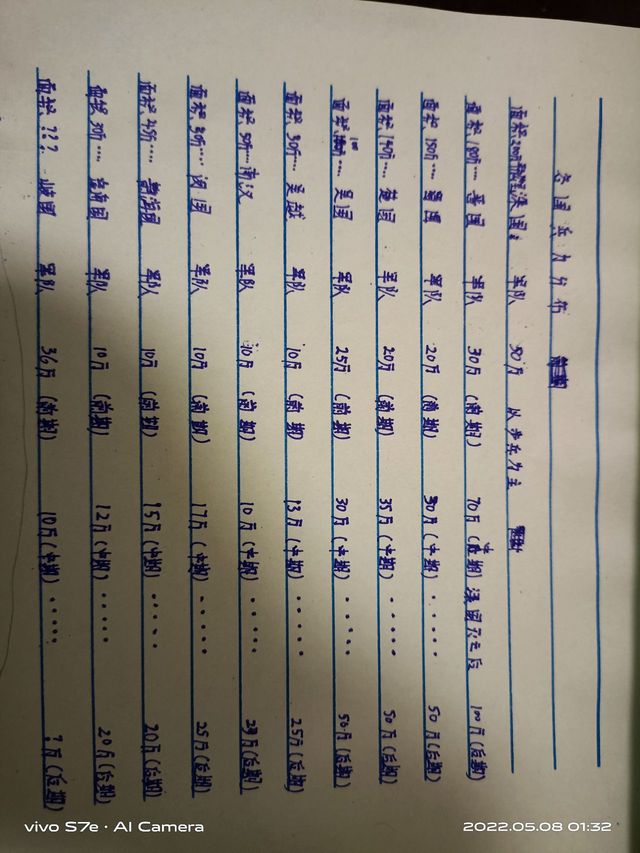 各国兵力分布
面积200万 汉国： 军队 50万 从步兵为主
面积180万…… 晋国 军队 30万（前期） 70万（中期）汉国灭之后 100万（后期）
面积150万…… 蜀国 军队 20万（前期） 30万（中期）…… 50万（后期）
面积140万…… 楚国 军队 20万（前期） 35万（中期）…… 50万（后期）
面积100…… 吴国 军队 25万（前期） 30万（中期）…… 50万（后期）
面积30万…… 吴越 军队 10万（前期） 13万（中期）…… 25万（后期）
面积50万…… 南汉 军队 10万（前期） 10万（中期）…… 万（后期）
面积30万…… 闵国 军队 10万（前期） 17万（中期）…… 25万（后期）
面积25万…… 国 军队 10万（前期） 15万（中期）…… 20万（后期）
面积30万…… 国 军队 10万（前期） 12万（中期）…… 20万（后期）
面积？？？ 国 军队 36万（前期） 10万（中期）…… ？万（后期）
vivo S7e · AI Camera
2022.05.08 01:32